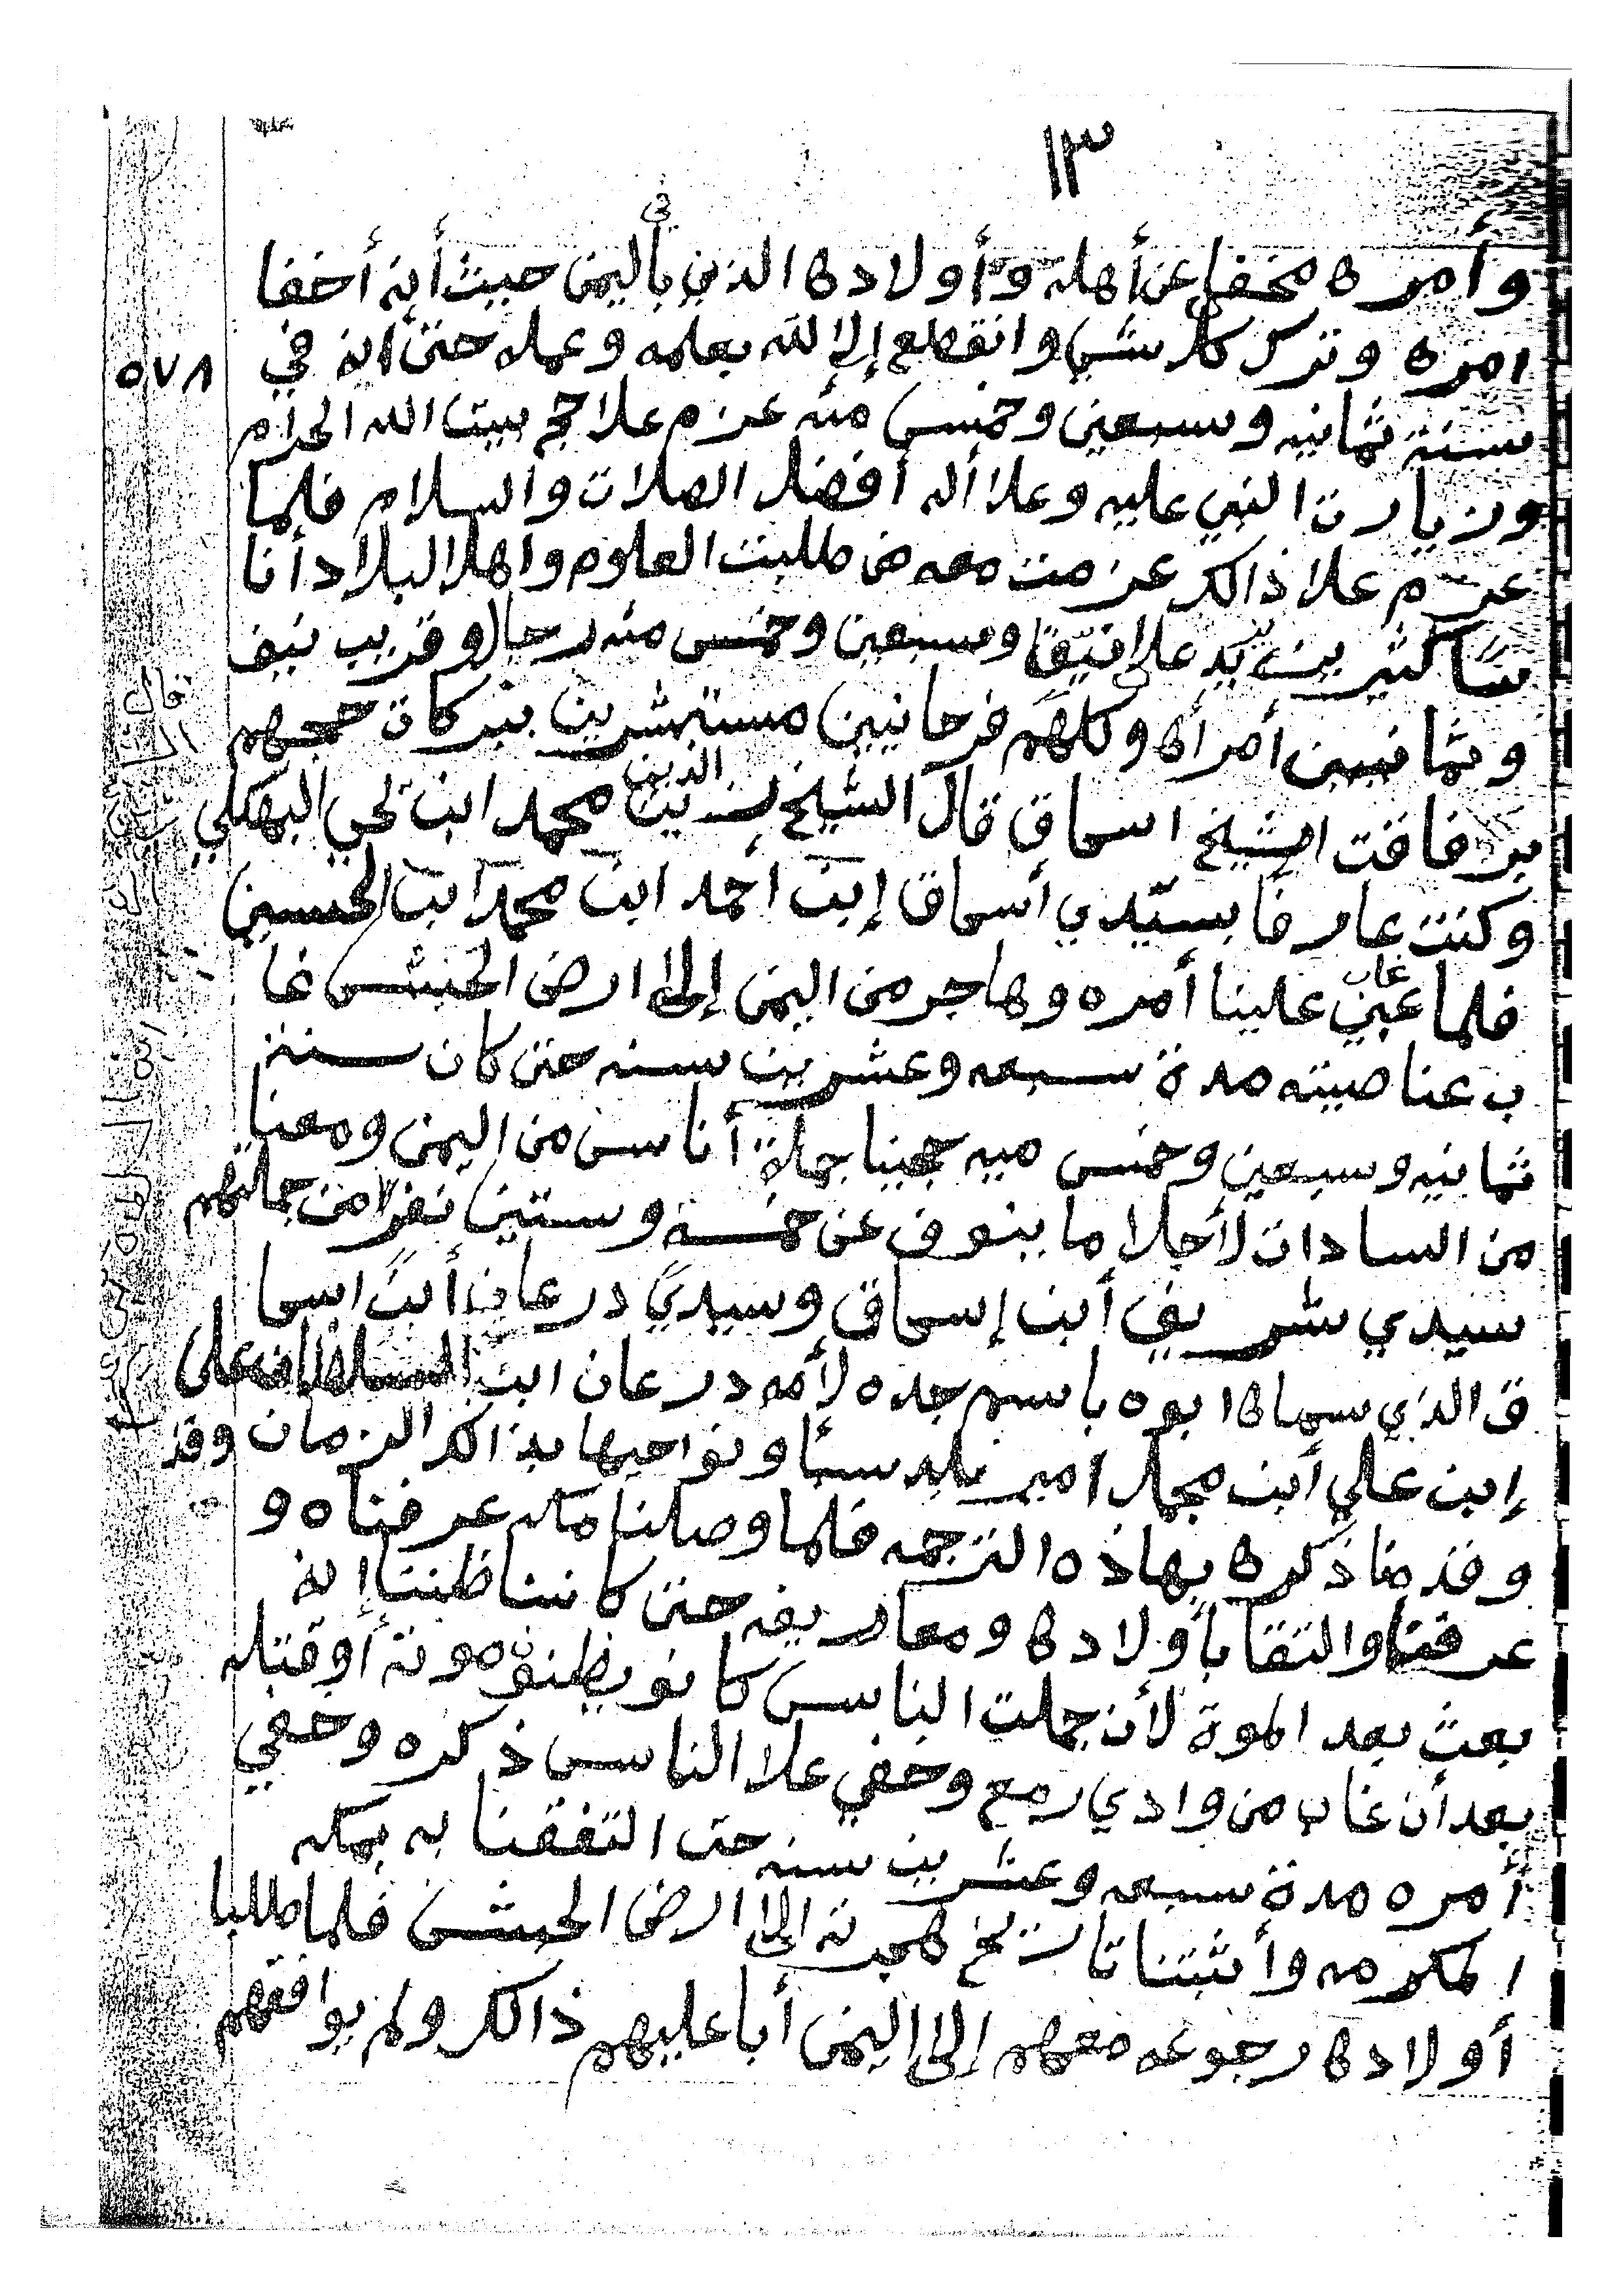 ١٣
وأمره مخفا عن أهله وأولاده الذي في بأليمن حيث أنه أخفا
امره وترك كل شي وانقطع إلا لله بعلمه وعمله حتى انه في
٥٧٨
سنة ثمانيه وسبعين وخمس مئه عزم علا حج بيت الله الحرام
وزيارت النبي عليه وعلا أله أفضل الصلات والسلام فلما
عزم علا ذالك عزمت معه من طلبت العلوم واهلا البلاد أنا
سا كثير يزيد علا نيفا وسبعين وخمس مئه رجال وقريب نيف
وثمانيين أمرأه وكلهم فرحانيين مستبشرين ببركات حجهم
برفاقت الشيخ اسحاق قال الشيخ زين الدين محمد ابن يحي البهكلي
وكنت عارفا بسيدي أسحاق إبن أحمد ابن محمد ابن الحسين
فلما غاب علينا أمره وهاجر من اليمن إلى ارض الحبش غا
ب عنا صيته مدة سبعه وعشرين سنه حتى كان سنة
ثمانيه وسبعين وخمس ميه حجينا جملة أناس من اليمن ومعنا
من السادات لأجلا ما ينوف عن خمسة وستين نفرا من جمالتهم
سيدي شريف أبن إسحاق وسيدي درعان أبن اسحا
ق الذي سماه ابوه باسم جده لأمه درعان ابن السلطان علي
إبن علي أبن مجمل امير بلد سبأ ونواحيها بذالك الزمان وقد
وقد مضا ذكره بهاذه الترجمه فلما وصلنا مكه عرفناه و
عرفنا والتقا بأولاده ومعاريفه حتى كاننا ظننا إنه
بعث بعد الموة لأن جملت الناس كانو يظنون موتة أو قتله
بعد أن غاب من وادي رمع وخفي علا الناس ذكره وخفي
أمره مدة سبعه وعشرين سنه حتى التفقنا به بمكه
المكرمه وأثبتنا تاريخ هجرته إلى ارض الحبش فلما طلبا
أولاده رجوعه معهم إلى اليمن أبا عليهم ذالك ولم يوافقهم